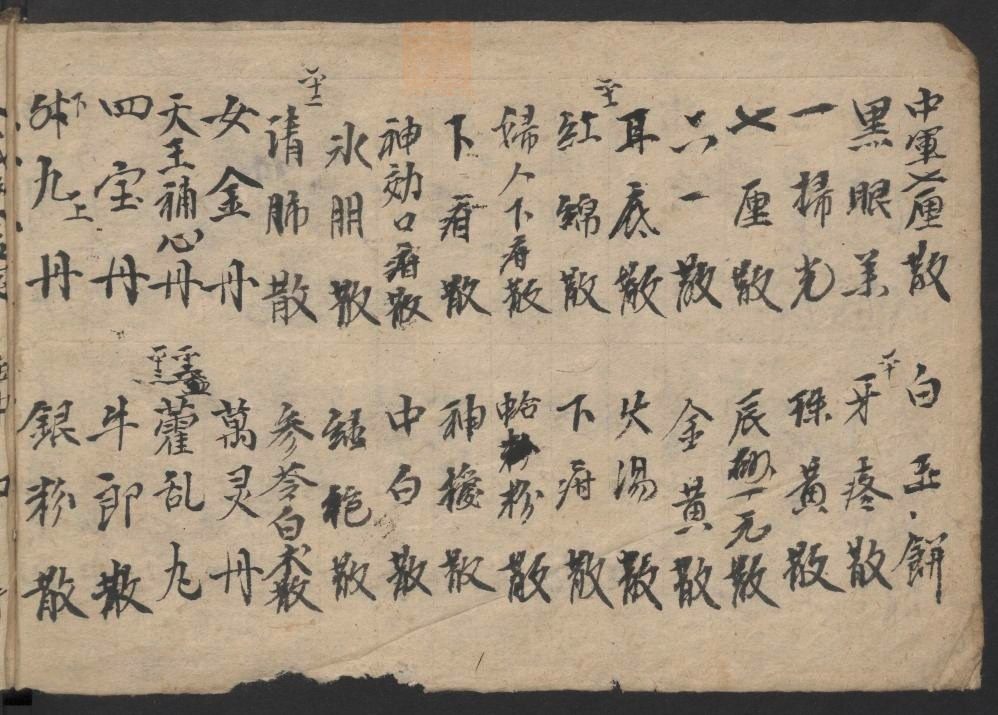 中軍七厘散
黑眼
一掃光
七厘散
六一散
耳底散
紅綿散
婦人下疳散
下疳散
神効口疳散
氷朋散
清肺散
女金丹
天王補心丹
四宝丹
九丹
下
上
白玉餅
牙疼散
珠黃散
辰砂一元散
金黃散
火湯散
下疳散
蛤粉散
神散
中白散
散
參苓白术散
萬灵丹
藿乱九
牛郎散
銀粉散